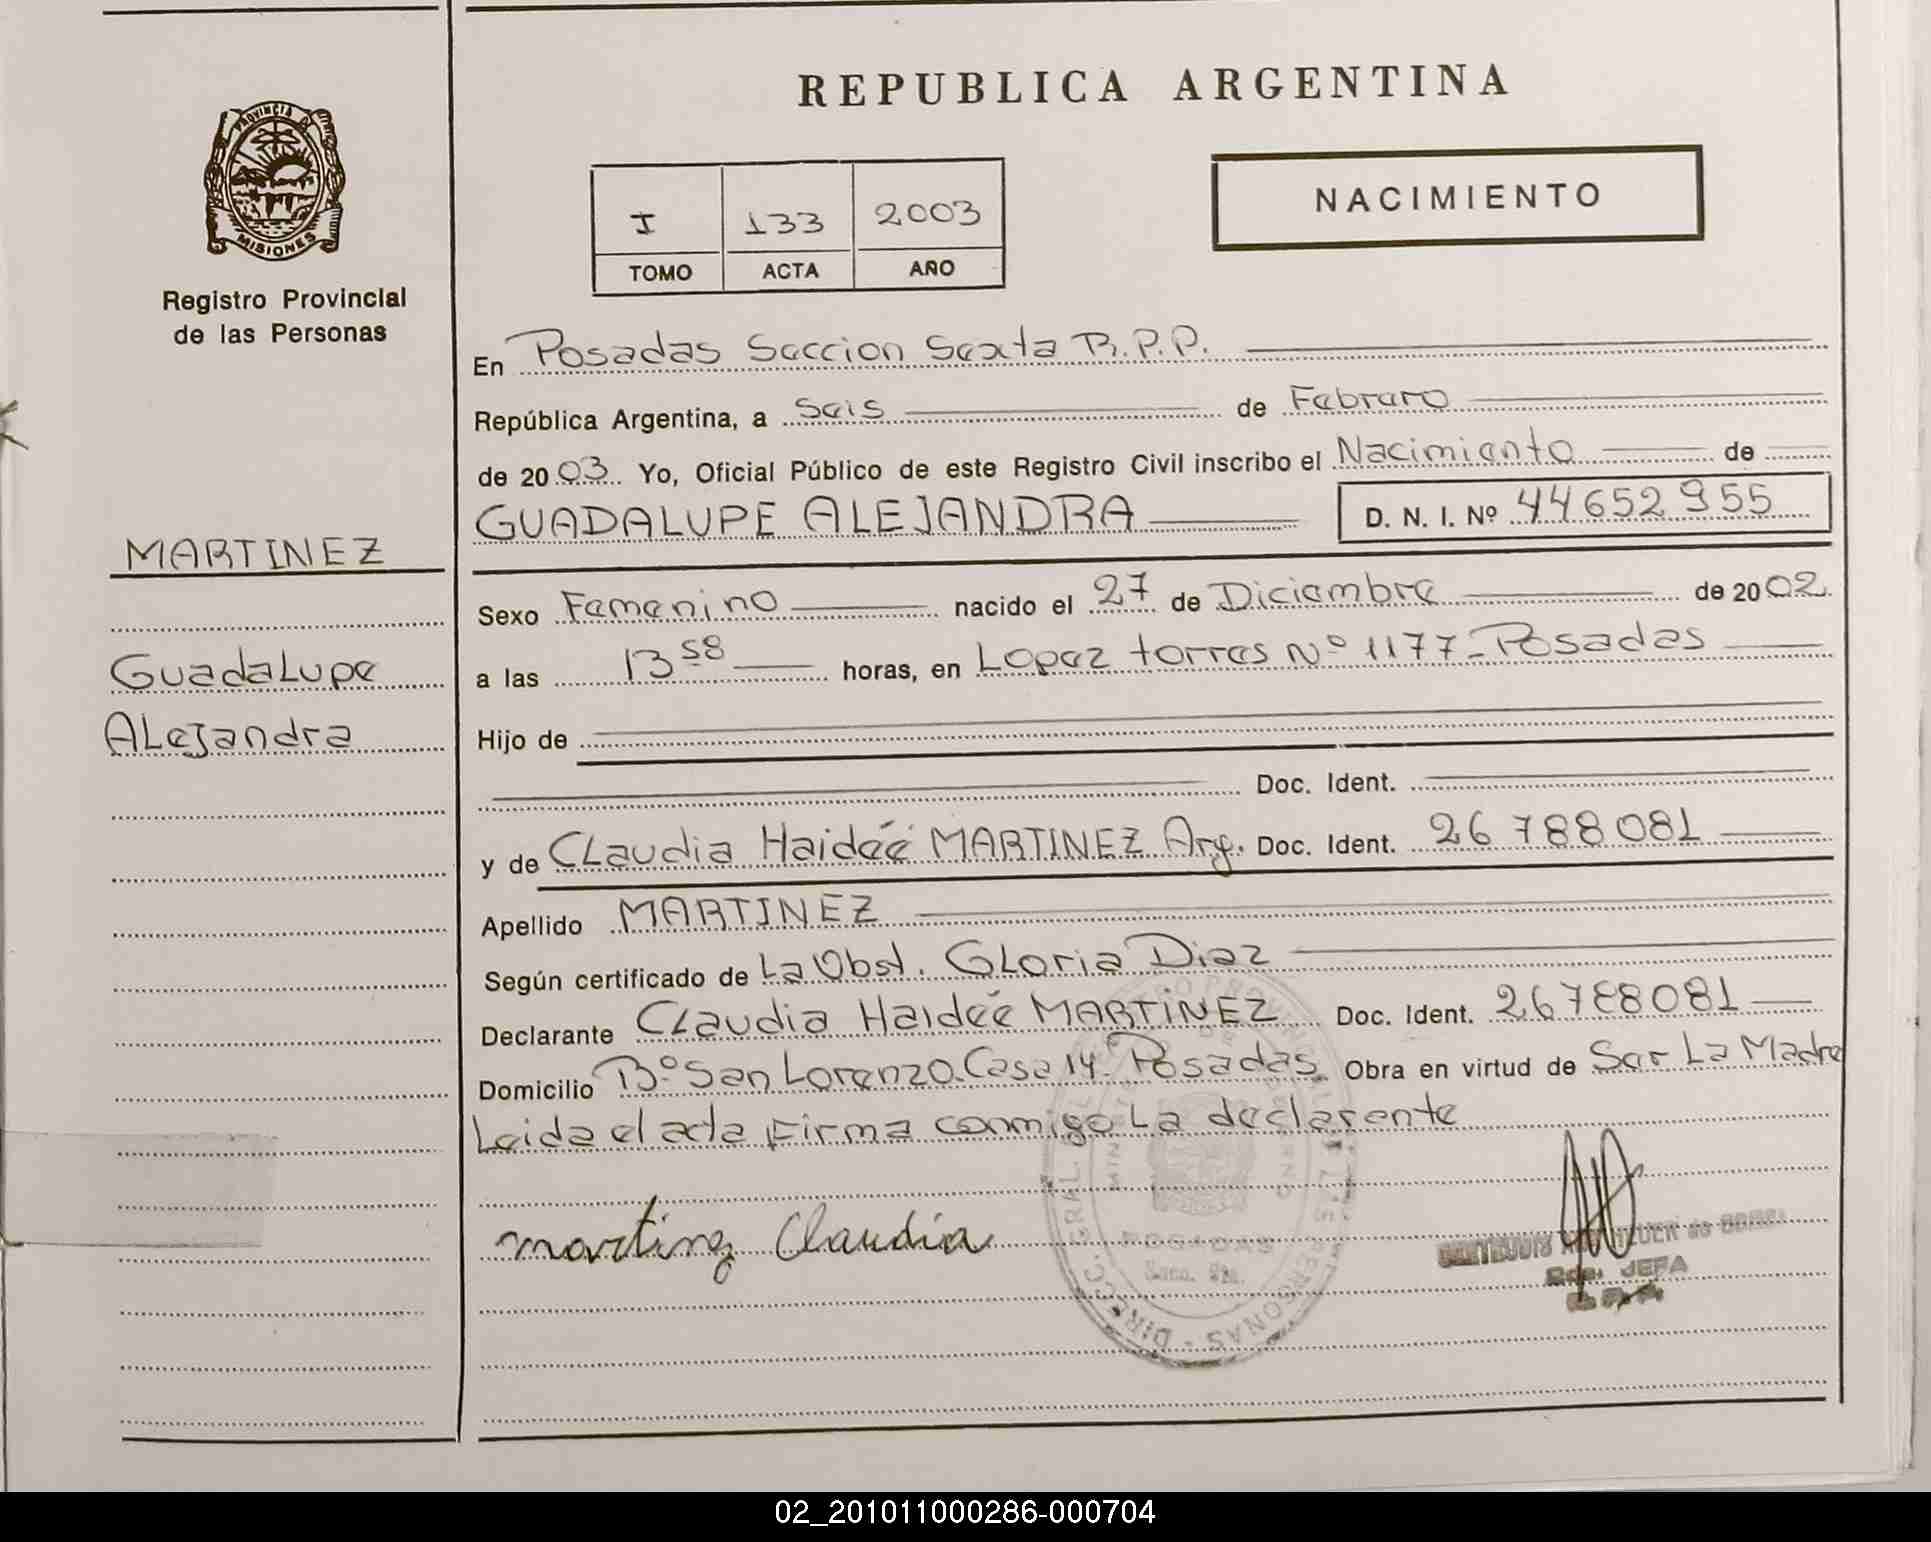 REPUBLICA ARGENTINA
PROVINCIA DE
MISIONES
Registro Provincial
de las Personas
I 133 2003
TOMO ACTA AÑO
NACIMIENTO
En Posadas Seccion Sexta R.P.P.
República Argentina, a Seis de Febrero
de 2003. Yo, Oficial Público de este Registro Civil inscribo el Nacimiento de
GUADALUPE ALEJANDRA D. N. I. Nº 44652955
MARTINEZ
Guadalupe
Alejandra
Sexo Femenino nacido el 27 de Diciembre de 2002.
a las 13 58 horas, en Lopez torres Nº 1177-Posadas
Hijo de
Doc. Ident.
y de Claudia Haideé MARTINEZ Arg. Doc. Ident. 26788081
Apellido MARTINEZ
Según certificado de La Obst. Gloria Diaz
Declarante Claudia Haideé MARTINEZ Doc. Ident. 26788081
Domicilio Bº San Lorenzo.Casa 14-Posadas Obra en virtud de Ser La Madre
Leida el acta Firma conmigo La declarente
martinez Claudia
POSADAS
JEFA
02_201011000286-000704